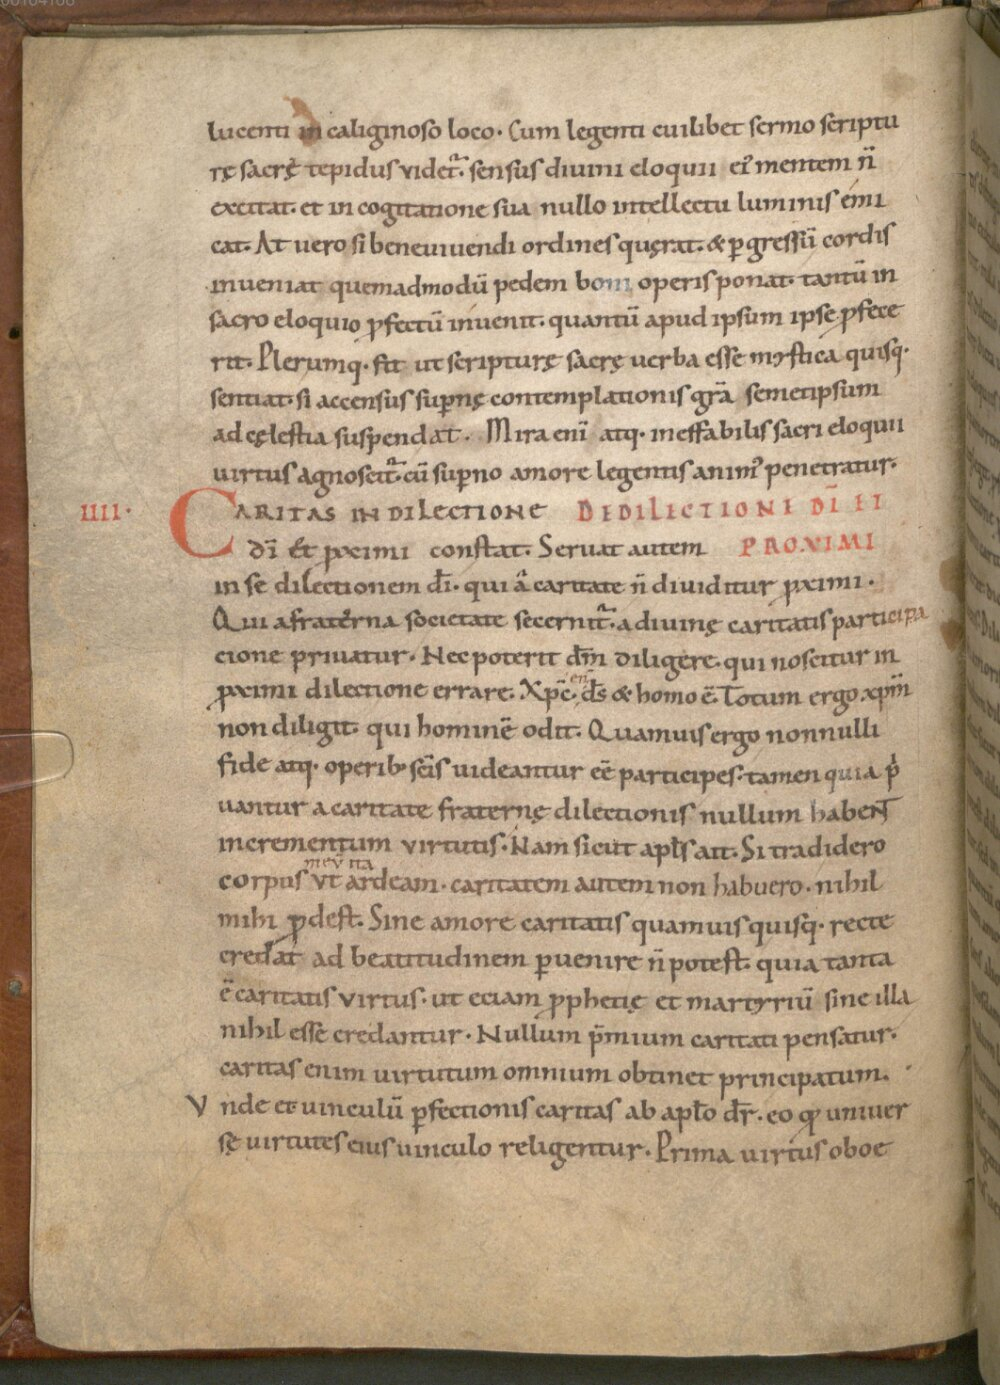 lucenti in caliginoso loco. Cum legenti cuilibet sermo scriptu
rę sacrę tepidus videt᷑. sensus diuini eloquii ei᷒ mentem n̄
excitat. et in cogitatione sua nullo intellectu luminis emi
cat. At uero si bene uiuendi ordines quęrat. & ꝑ gressū cordis
inueniat quemadmodū pedem boni operis ponat. tantū in
sacro eloquio ꝓfectū inuenit. quantū apud ipsum ipse ꝓfece
rit. Plerumq. fit ut scripturę sacrę uerba esse mystica quisq.
sentiat. si accensus suꝑnę contemplationis gr̄a semetipsum
ad cęlestia suspendat. Mira eni̅ atq. ineffabilis sacri eloquii
virtus agnoscit᷑. cū suꝑno amore legentis anim᷒ penetratur.
IIII. CARITAS IN DILECTIONE DE DILECTIONE DI̅ ET
di̅ et ꝓximi constat. Seruat autem PROXIMI
in se dilectionem dı̅. qui a caritate n̄ diuiditur ꝓximi.
Qui a fraterna societate secernit᷑. a diuinę caritatis participa
cione priuatur. Nec poterit dm̄ diligere. qui noscitur in
ꝓximi dilectione errare. Xp̄c. ds̄ & homo ē. Totum ergo xpm̄
non diligit. qui hominē odit. Quamuis ergo nonnulli
fide atq. operib; sc̄is uideantur eē participes. tamen quia pͥ
uantur a caritate fraternę dilectionis nullum habent
incrementum virtutis. Nam sicut apl̄s ait. Si tradidero
corpus meū ita vt ardeam. caritatem autem non habuero. nihil
mihi ꝓdest. Sine amore caritatis quamuis quisq. recte
credat ad beatitudinem ꝑuenire n̄ potest. quia tanta
ē caritatis virtus. ut eciam ꝓphetię et martyriū sine illa
nihil esse credantur. Nullum p̄mium caritati pensatur.
caritas enim virtutum omnium obtinet principatum.
Vnde et uinculū ꝑfectionis caritas ab apl̄o dr̄. eo qđ uniuer
sę virtutes eius uinculo religentur. Prima virtus oboe